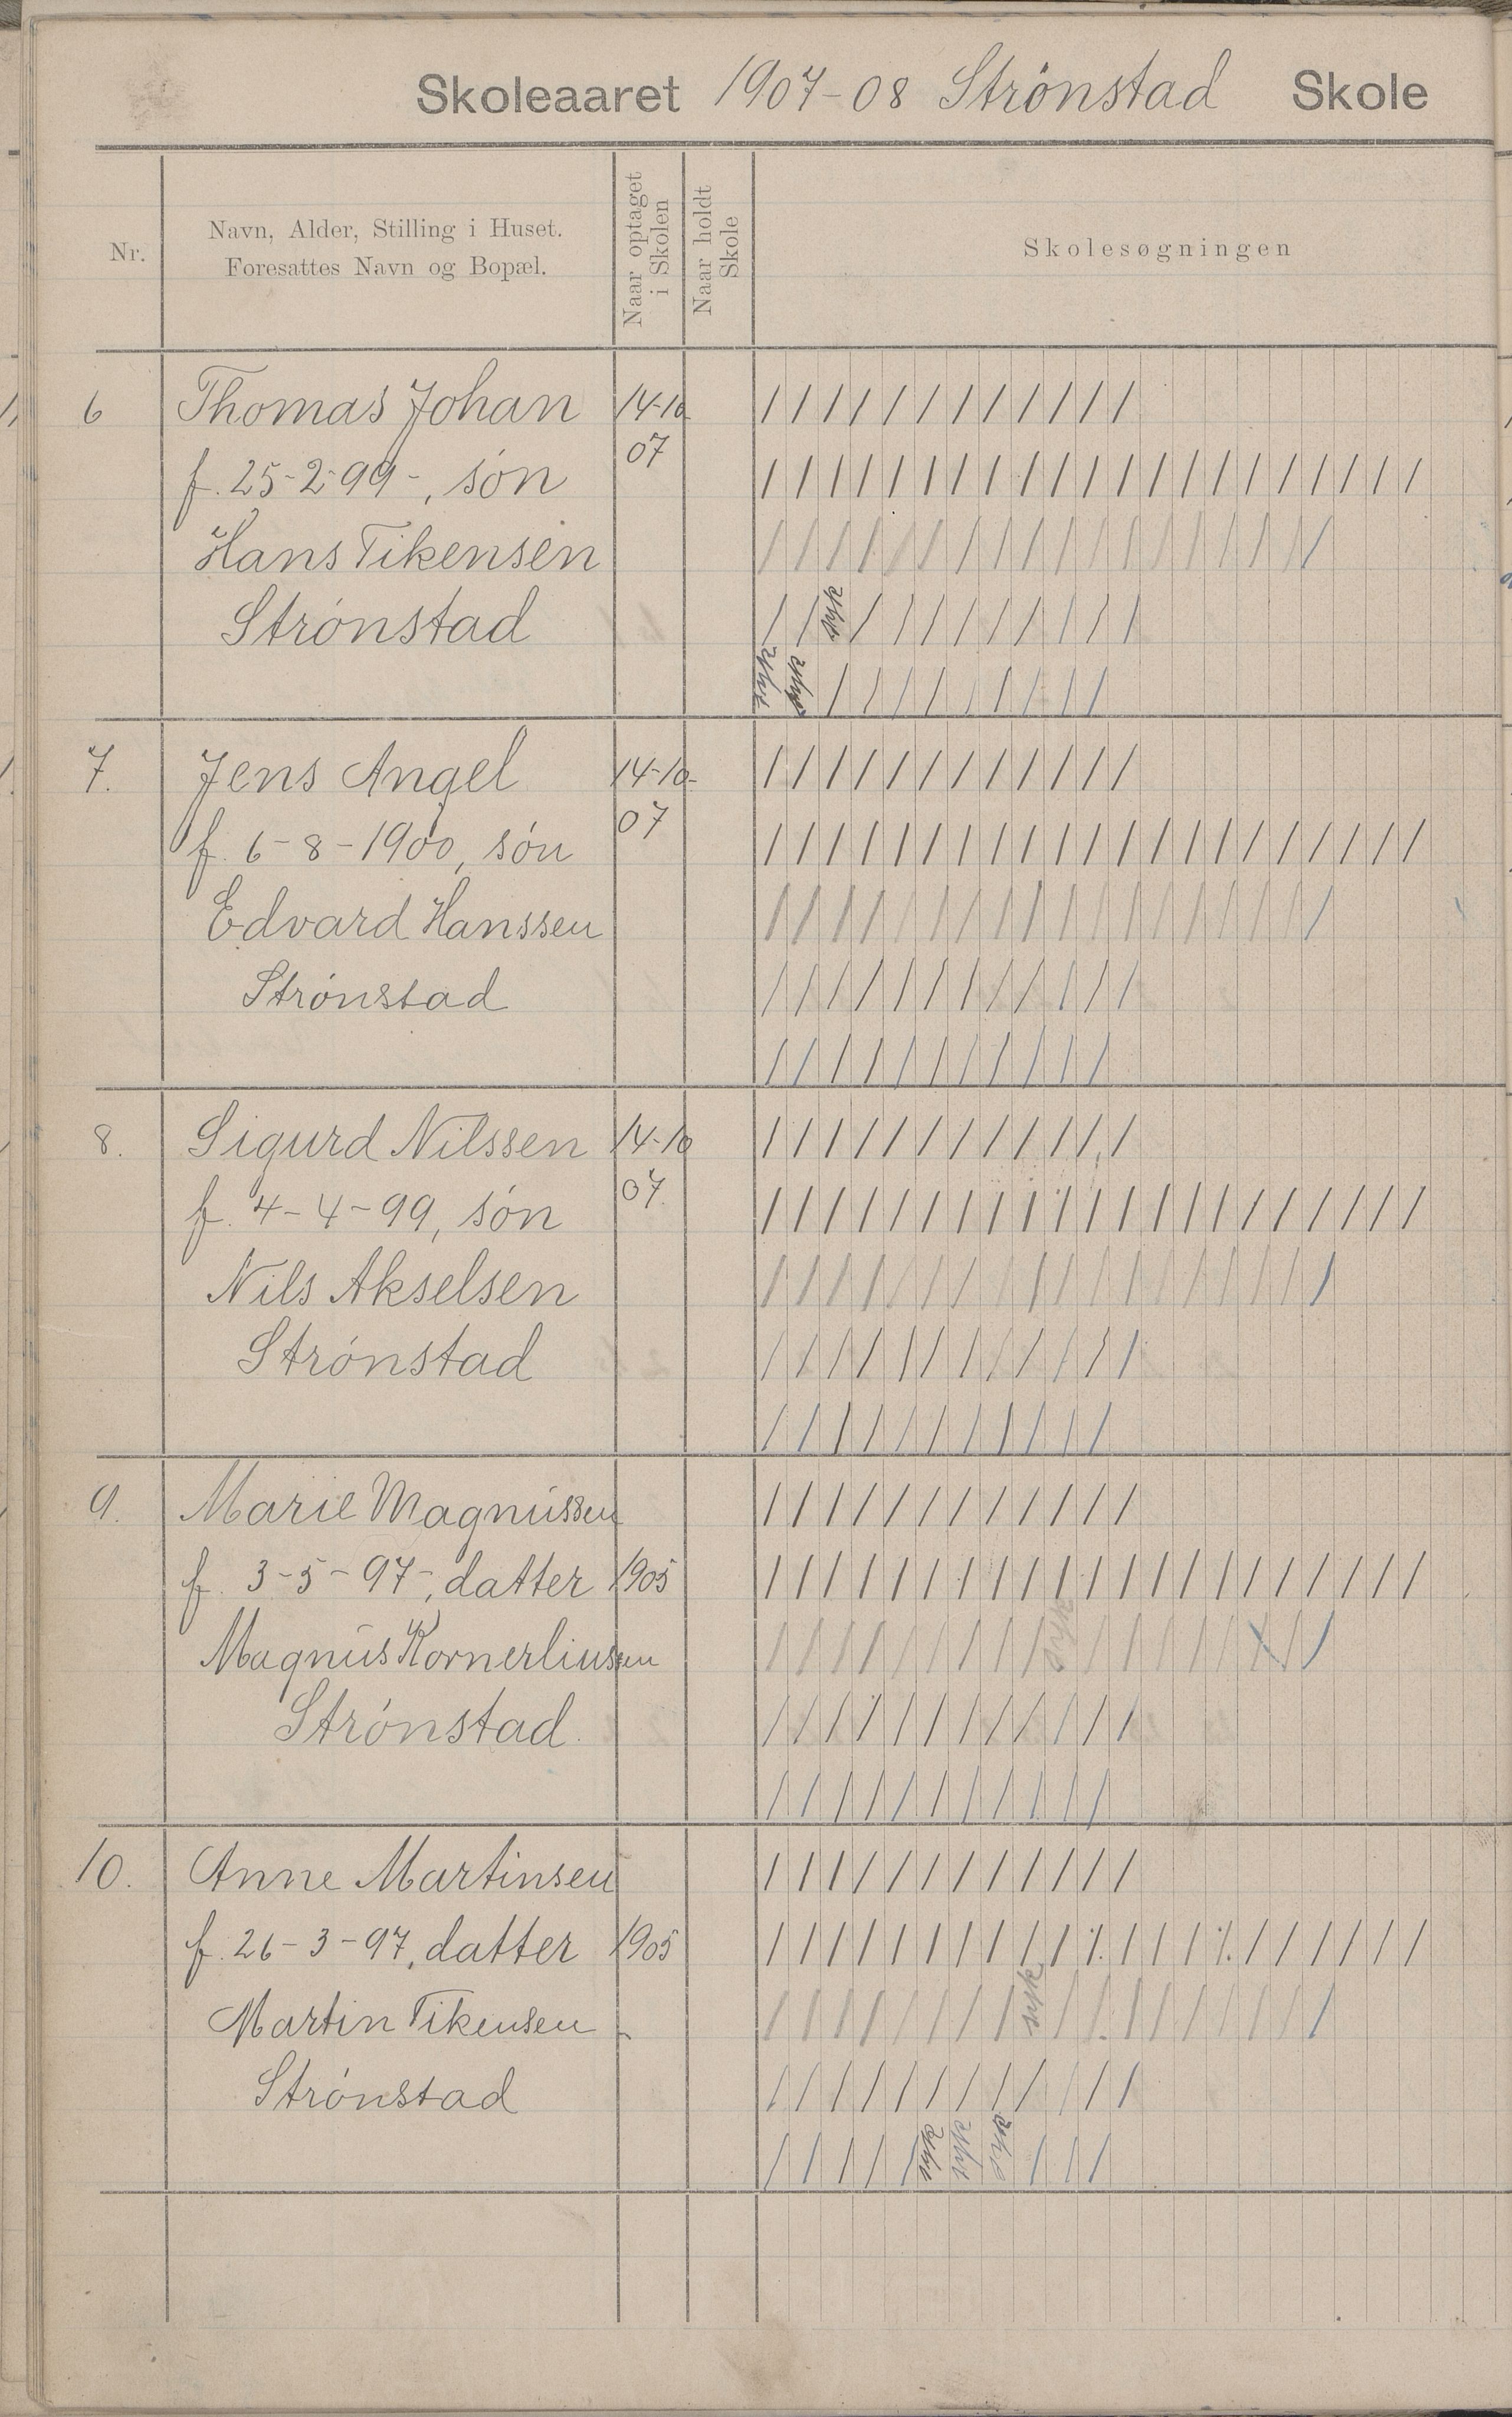 Skoleaaret 1907-08 Strönstad Skole
Nr.
Navn, Alder, Stilling i Huset.
Foresattes Navn og Bopæl.
Naar optaget
i Skolen
Naar holdt
Skole
Skolesøgningen
6 Thomas Johan 14-10
07
f. 25-2-99-, sön
Hans Tikensen
Strönstad
syk
syk syk
7. Jens Angel 14-10-
07
f. 6-8-1900, sön
Edvard Hanssen
Strönstad
8. Sigurd Nilssen 14-10
07.
f. 4-4-99, sön
Nils Akselsen
Strönstad
9. Marie Magnussen
f. 3-5-97-, datter 1905
Magnus Kornerliussen
syk
Strönstad.
10. Anne Martinsen
f. 26-3-97, datter 1905
Martin Tikensen
syk
Strönstad
syk syk syk